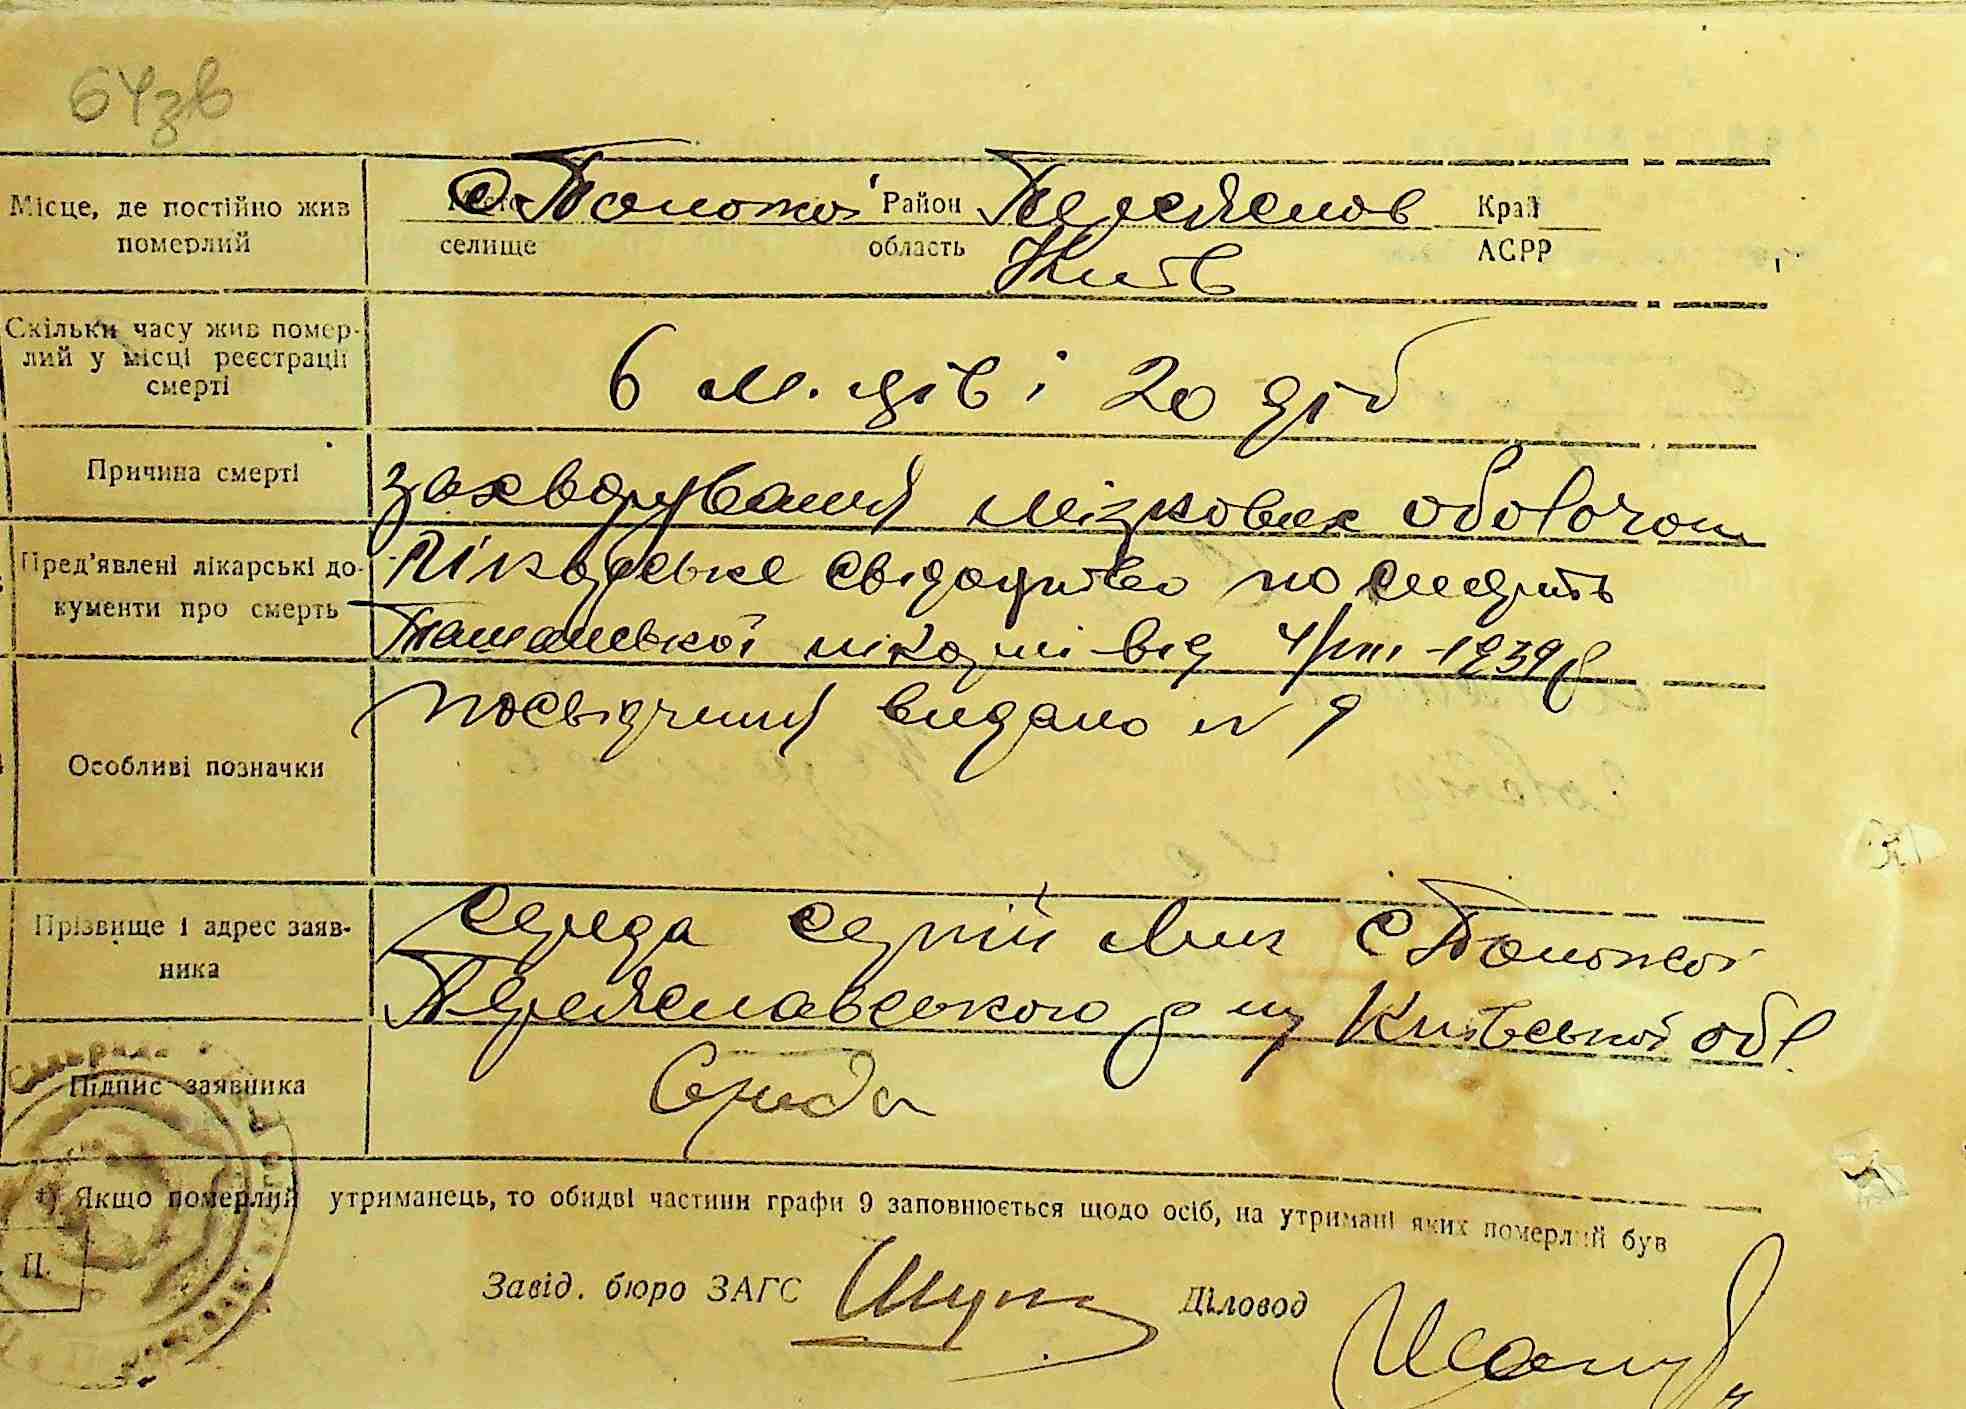 64зв
Місце, де постійно жив померлий
с. Положаї Район Переяслов Край
селище область Київ АСРР
Скільки часу жив помер-
лий у місці реєстрації
смерті
6 м.ців і 20 діб
Причина смерті
захворування мізкових оболочок
Пред'явлені лікарські до-
кументи про смерть
Лікарське свідоцтво по смерть
Ташанської лікарні від 4/VIII-1939 р
Особливі позначки
посвідчення видано № 9
Прізвище і адрес заяв-
ника
Середа Сергій с Положаї
Переяславського р ну Київської обл.
Підпис заявника
Середа
*) Якщо померлий утриманець, то обидві частини графи 9 заповнюється щодо осіб, на утримані яких померлий був
П.
Завід. бюро ЗАГС Діловод